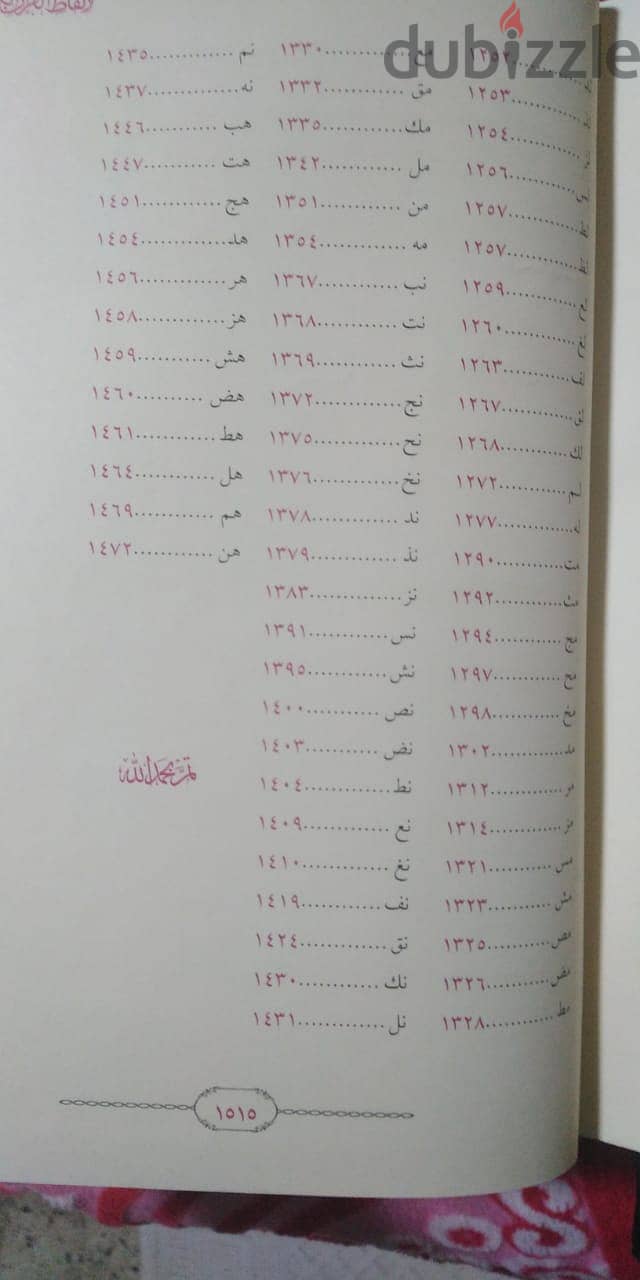 dubizzle
١٢٥٣
١٢٥٤
١٢٥٦
١٢٥٧
١٢٥٧
١٢٥٩
١٢٦٠
١٢٦٣
لق..........١٢٦٧
لك..........١٢٦٨
لم..........١٢٧٢
له..........١٢٧٧
مت..........١٢٩٠
مث..........١٢٩٢
مج..........١٢٩٤
مح..........١٢٩٧
مخ..........١٢٩٨
مد..........١٣٠٢
مر..........١٣١٢
مز..........١٣١٤
مس..........١٣٢١
مش..........١٣٢٣
مص..........١٣٢٥
مض..........١٣٢٦
مط..........١٣٢٨
مع..........١٣٣٠
مق..........١٣٣٢
مك..........١٣٣٥
مل..........١٣٤٢
من..........١٣٥١
مه..........١٣٥٤
نب..........١٣٦٧
نت..........١٣٦٨
نث..........١٣٦٩
نج..........١٣٧٢
نح..........١٣٧٥
نخ..........١٣٧٦
ند..........١٣٧٨
نذ..........١٣٧٩
نز..........١٣٨٣
نس..........١٣٩١
نش..........١٣٩٥
نص..........١٤٠٠
نض..........١٤٠٣
نط..........١٤٠٤
نع..........١٤٠٩
نغ..........١٤١٠
نف..........١٤١٩
نق..........١٤٢٤
نك..........١٤٣٠
نل..........١٤٣١
نم..........١٤٣٥
نه..........١٤٣٧
هب..........١٤٤٦
هت..........١٤٤٧
هج..........١٤٥١
هد..........١٤٥٤
هر..........١٤٥٦
هز..........١٤٥٨
هش..........١٤٥٩
هض..........١٤٦٠
هط..........١٤٦١
هل..........١٤٦٤
هم..........١٤٦٩
هن..........١٤٧٢
تم بحمد الله
١٥١٥